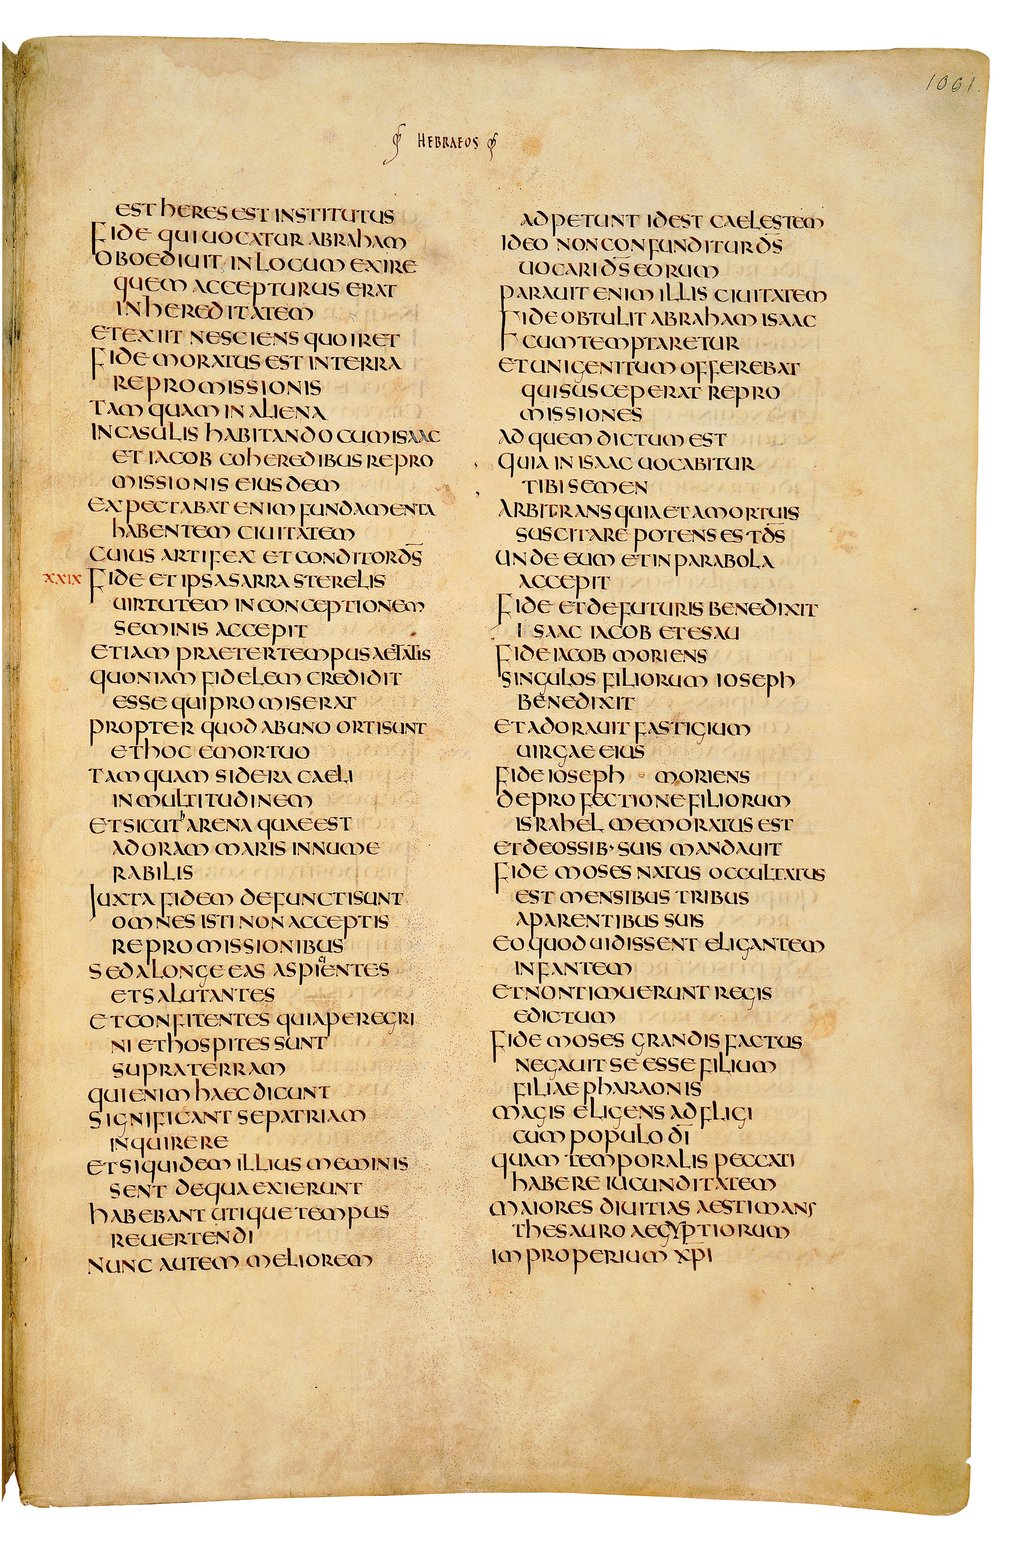 1061.
HEBRAEOS
EST HERES EST INSTITUTUS
FIDE QUI UOCATUR ABRAHAM
OBOEDIUIT IN LOCUM EXIRE
QUEM ACCEPTURUS ERAT
IN HEREDITATEM
ET EXIIT NESCIENS QUO IRET
FIDE MORATUS EST IN TERRA
REPROMISSIONIS
TAMQUAM IN ALIENA
IN CASULIS HABITANDO CUM ISAAC
ET IACOB COHEREDIBUS REPRO
MISSIONIS EIUSDEM
EXPECTABAT ENIM FUNDAMENTA
HABENTEM CIUITATEM
CUIUS ARTIFEX ET CONDITOR D̅S̅
XXIX FIDE ET IPSA SARRA STERELIS
UIRTUTEM IN CONCEPTIONEM
SEMINIS ACCEPIT
ETIAM PRAETER TEMPUS AETATIS
QUONIAM FIDELEM CREDIDIT
ESSE QUI PROMISERAT
PROPTER QUOD AB UNO ORTI SUNT
ET HOC EMORTUO
TAMQUAM SIDERA CAELI
IN MULTITUDINEM
ET SICUT ARENA QUAE EST
AD ORAM MARIS INNUME
RABILIS
IUXTA FIDEM DEFUNCTI SUNT
OMNES ISTI NON ACCEPTIS
REPROMISSIONIBUS
SED A LONGE EAS ASPICIENTES
ET SALUTANTES
ET CONFITENTES QUIA PEREGRI
NI ET HOSPITES SUNT
SUPRA TERRAM
QUI ENIM HAEC DICUNT
SIGNIFICANT SE PATRIAM
INQUIRERE
ET SI QUIDEM ILLIUS MEMINIS
SENT DE QUA EXIERUNT
HABEBANT UTIQUE TEMPUS
REUERTENDI
NUNC AUTEM MELIOREM
ADPETUNT ID EST CAELESTEM
IDEO NON CONFUNDITUR D̅S̅
UOCARI D̅S̅ EORUM
PARAUIT ENIM ILLIS CIUITATEM
FIDE OBTULIT ABRAHAM ISAAC
CUM TEMPTARETUR
ET UNIGENITUM OFFEREBAT
QUI SUSCEPERAT REPRO
MISSIONES
AD QUEM DICTUM EST
QUIA IN ISAAC UOCABITUR
TIBI SEMEN
ARBITRANS QUIA ET A MORTUIS
SUSCITARE POTENS EST D̅S̅
UNDE EUM ET IN PARABOLA
ACCEPIT
FIDE ET DE FUTURIS BENEDIXIT
ISAAC IACOB ET ESAU
FIDE IACOB MORIENS
SINGULOS FILIORUM IOSEPH
BENEDIXIT
ET ADORAUIT FASTIGIUM
UIRGAE EIUS
FIDE IOSEPH MORIENS
DE PROFECTIONE FILIORUM
ISRAHEL MEMORATUS EST
ET DE OSSIB· SUIS MANDAUIT
FIDE MOSES NATUS OCCULTATUS
EST MENSIBUS TRIBUS
A PARENTIBUS SUIS
EO QUOD UIDISSENT ELIGANTEM
INFANTEM
ET NON TIMUERUNT REGIS
EDICTUM
FIDE MOSES GRANDIS FACTUS
NEGAUIT SE ESSE FILIUM
FILIAE PHARAONIS
MAGIS ELIGENS ADFLIGI
CUM POPULO D̅I̅
QUAM TEMPORALIS PECCATI
HABERE IUCUNDITATEM
MAIORES DIUITIAS AESTIMANS
THESAURO AEGYPTIORUM
IMPROPERIUM X̅P̅I̅